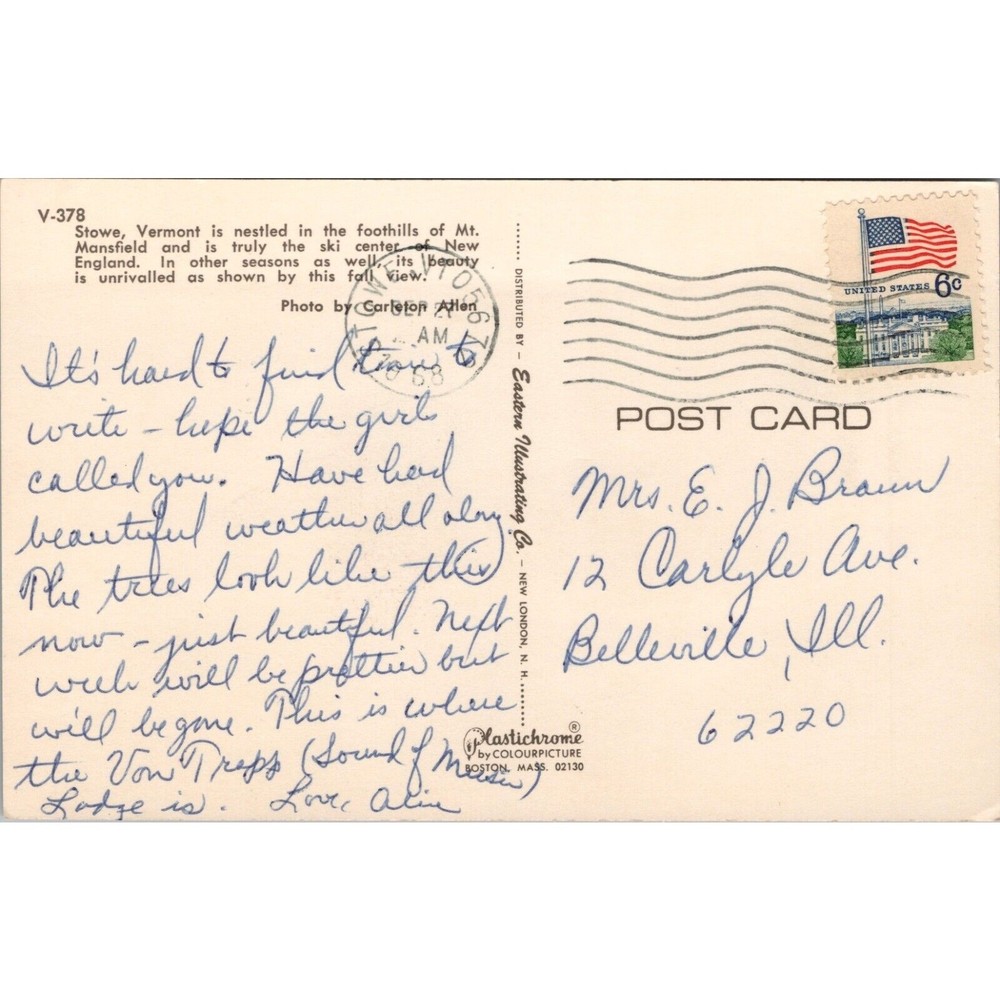 V-378
Stowe, Vermont is nestled in the foothills of Mt.
Mansfield and is truly the ski center of New
England. In other seasons as well, its beauty
is unrivalled as shown by this fall view.
Photo by Carleton Allen
It's hard to find time to
write - hope the girls
called you. Have had
beautiful weather all along
The trees look like this
now - just beautiful. Next
week will be prettier but
we'll be gone. This is where
the Von Trapp (Sound of Music)
Lodge is. Love,
DISTRIBUTED BY - Eastern Illustrating Co. - NEW LONDON, N. H.
Plastichrome ®
by COLOURPICTURE
BOSTON, MASS. 02130
STOWE VT 05672
SEP
AM
1968
UNITED STATES 6c
POST CARD
Mrs. E. J. Braun
12 Carlyle Ave.
Belleville, Ill.
62220